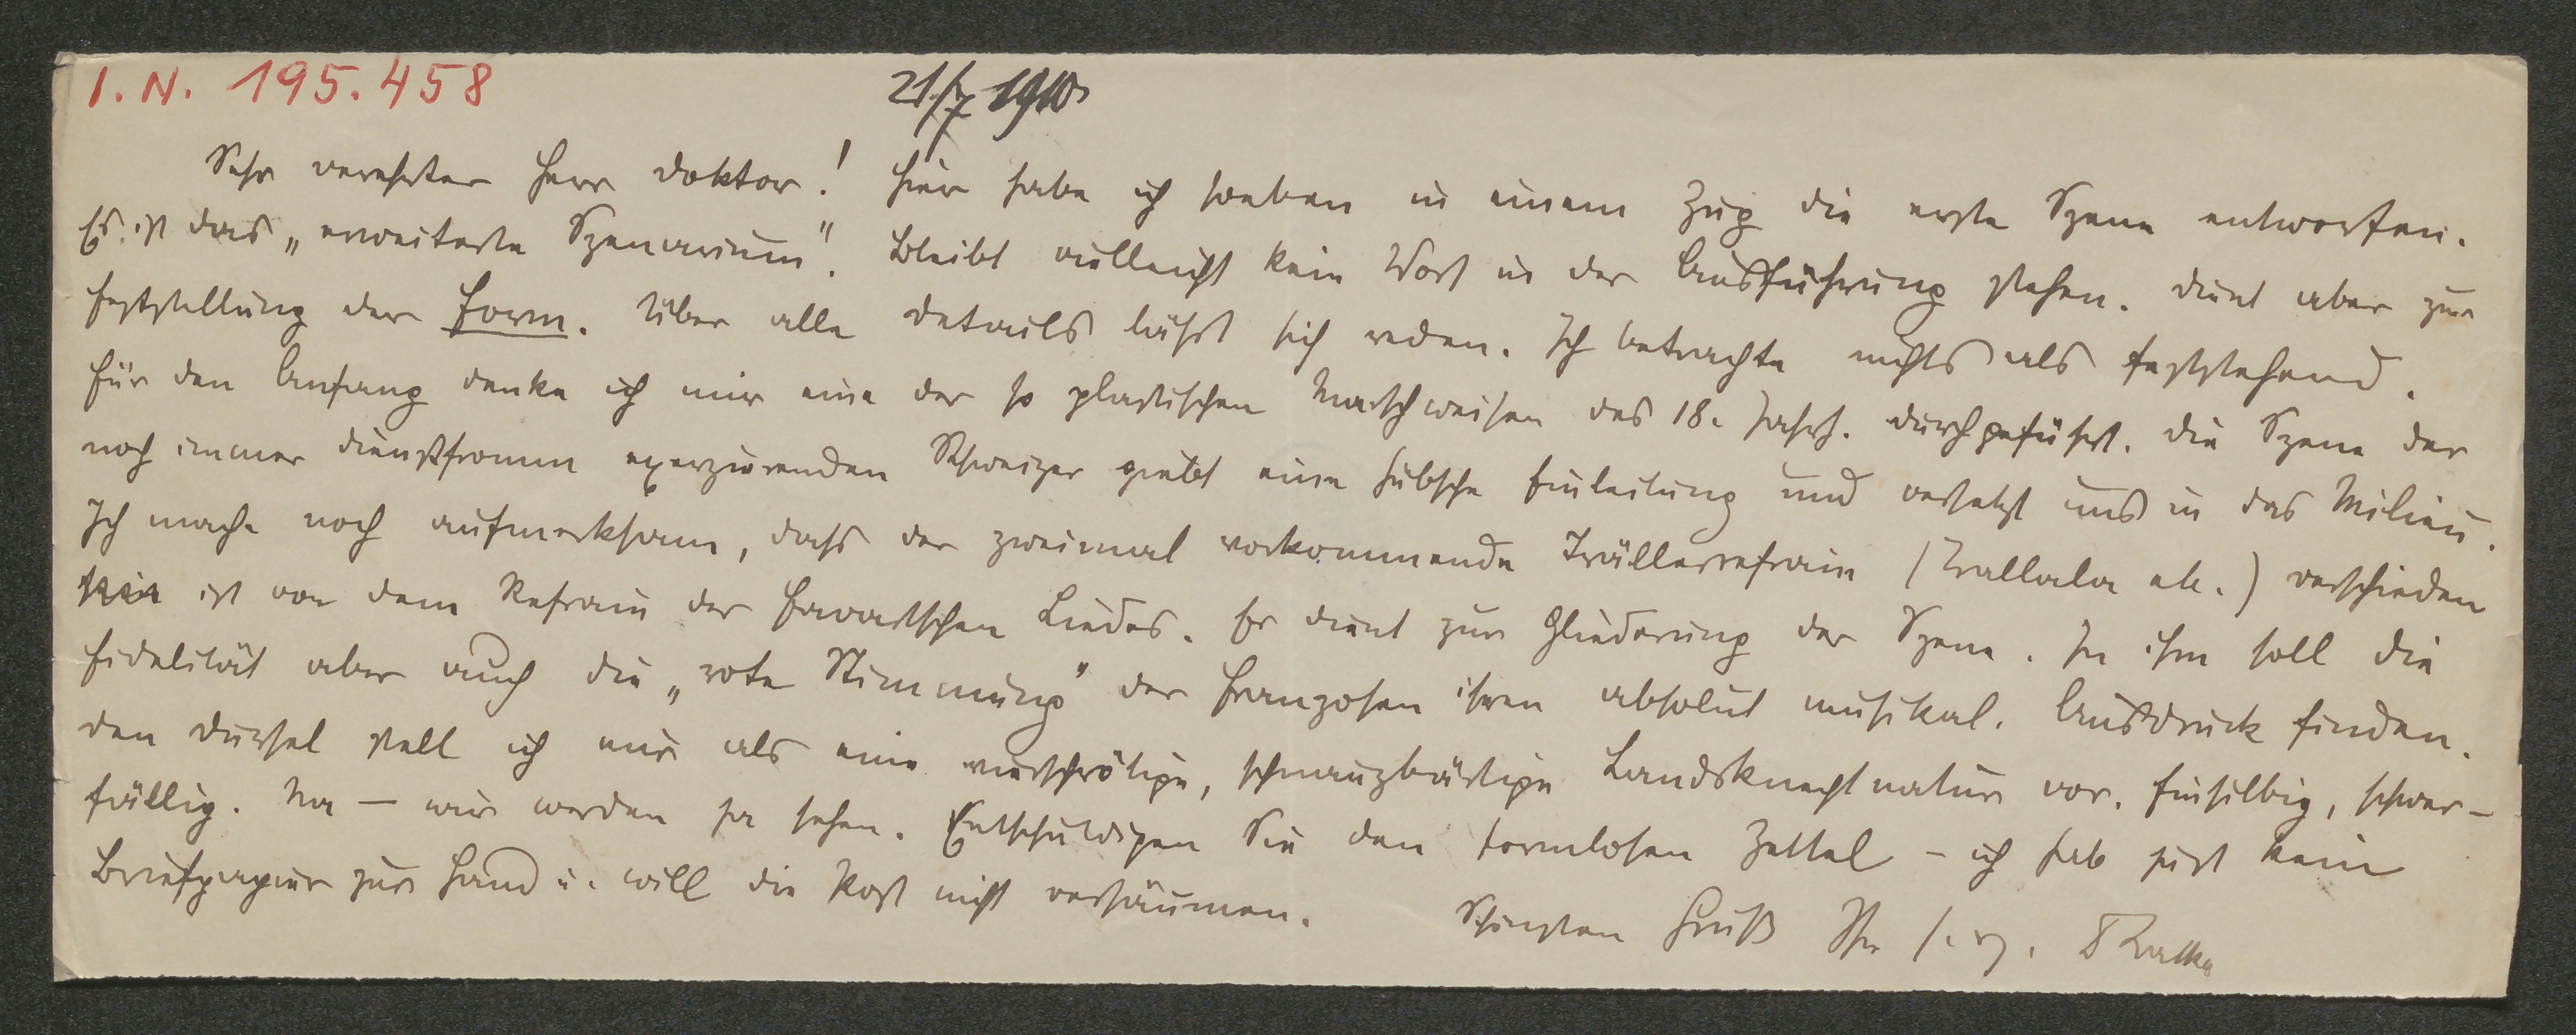 I. N. 195.458
21/7 1910
Sehr verehrter Herr Doktor! Hier habe ich soeben in einem Zug die erste Szene entworfen.
Es ist das „erweiterte Szenarium". Bleibt vielleicht kein Wort in der Ausführung stehen. Dient aber zur
Feststellung der Form. Über alle Details läßt sich reden. Ich betrachte nichts als feststehend.
Für den Anfang denke ich mir eine der so plastischen Marschweisen des 18. Jahrh. durchgeführt. Die Szene der
noch immer dienstfromm exerzierenden Schweizer giebt eine hübsche Einleitung und versetzt uns in das Milieu.
Ich mache noch aufmerksam, dass der zweimal vorkommende Trällerrefrain (Trallala etc.) verschieden
ist von dem Refrain des Favartschen Liedes. Er dient zur Gliederung der Szene. In ihm soll die
Fidelität aber auch die „rote Stimmung" der Franzosen ihren absolut musikal. Ausdruck finden.
Den Dursel stell ich mir als eine vierschrötige, schnauzbärtige Landsknechtnatur vor. Einsilbig, schwer-
fällig. Na — wir werden ja sehen. Entschuldigen Sie den formlosen Zettel – ich hab jetzt kein
Briefpapier zur Hand u. will die Post nicht versäumen.
Schönsten Gruß Ihr erg. R Batka